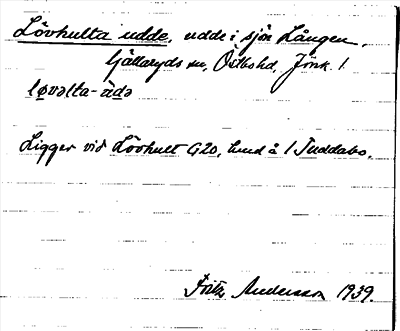 Lövhulta udde, udde i sjön Lången.
Gällaryds sn, Östbo hd, Jönk. l.
løvəlta-ùdə
Ligger vid Lövhult G20, hund å 1 Tuddabo.
Fritz Andersson 1939.